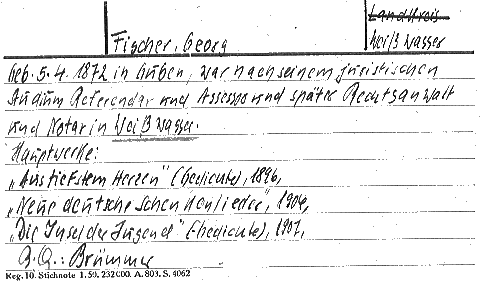 Landkreis
Fischer, Georg
Weißwasser
Geb. 5. 4. 1872 in Guben, war nach seinem juristischen
Studium Referendar und Assessor und später Rechtsanwalt
und Notar in Weißwasser.
Hauptwerke:
„Aus tiefstem Herzen" (Gedichte), 1896,
„Neue deutsche Schen kenlieder", 1904,
„Die Insel der Jugend" (Gedichte), 1907,
Q.Q.: Brümmer
Reg. 10. Stichnote 1. 59. 232 000. A. 803. S. 4062